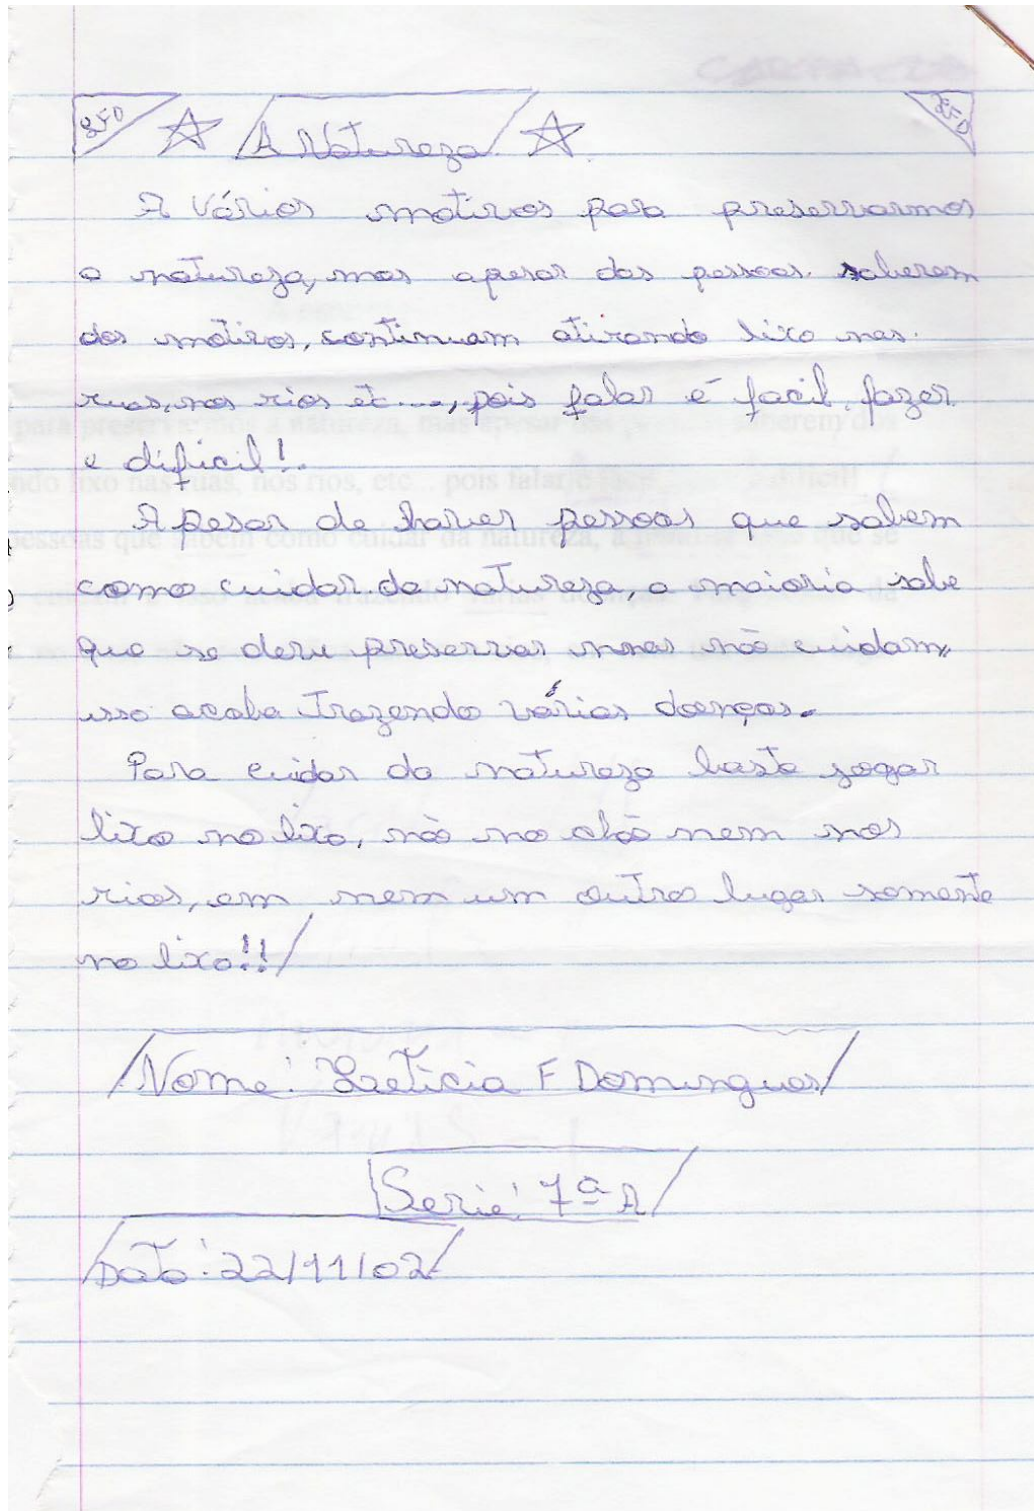 LFD A Natureza LFD
A Vários motivos para preservarmos
a natureza, mas apesar das pessoas saberem
dos motivos, continuam atirando lixo nas
ruas, nos rios etc...., pois falar é facil, fazer
e dificil!.
Apesar de haver pessoas que sabem
como cuidar da natureza, a maioria sabe
que se deve preservar mas não cuidam,
isso acaba trazendo várias doenças.
Para cuidar da natureza basta jogar
lixo no lixo, não no chão nem nos
rios, em nem um outro lugar somente
no lixo!!
Nome: Laeticia F Domingues
Serie: 7ª A
Data: 22/11/02